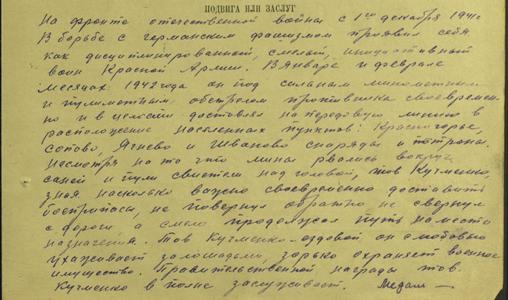 ПОДВИГА ИЛИ ЗАСЛУГ
На фронте отечественной войны с 1го декабря 1941г
В борьбе с германским фашизмом проявил себя
как дисциплинированной, смелой, инициативный
воин Красной Армии. В январе и феврале
месяцах 1942 года он под сильным минометным
и пулиметным обстрелом противника своевремен-
но и в целости доставлял на передовую линию в
расположение населенных пунктов: Красногорье,
Сопово, Ячнево и Иваново снаряды и патроны.
Несмотря на то что мины рвались вокруг
саней и пули свистели над головой, тов Кучменко,
зная насколько важно своевременно доставить
боеприпасы, не повернул обратно не свернул
с дороги а смело продолжал путь к месту
назначения. Тов Кучменко-ездовой он с любовью
ухаживает за лошадьми, зорко охраняет военное
имущество. Правительственной награды тов.
Кучменко в полне заслуживает. Медаль —